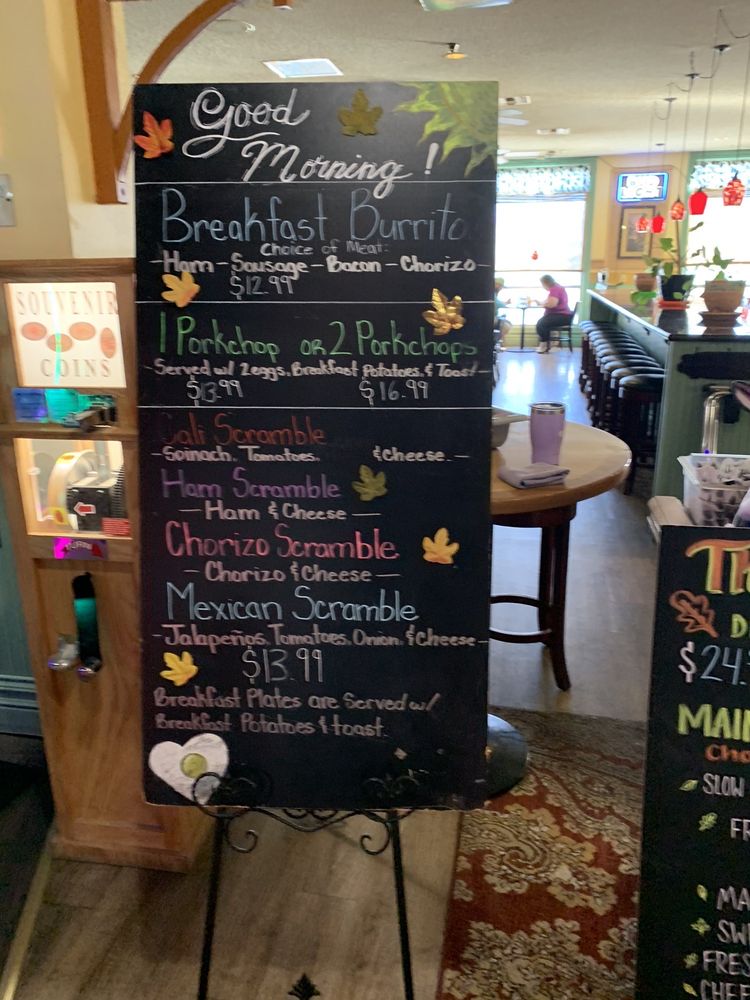 Good
Morning!
Breakfast Burrito
Choice of Meat:
Ham - Sausage - Bacon - Chorizo
$12.99
1 Porkchop or 2 Porkchops
Served w/ 2 eggs, Breakfast Potatoes, & Toast
$13.99 $16.99
Cali Scramble
Spinach, Tomatoes, & Cheese.
Ham Scramble
Ham & Cheese
Chorizo Scramble
Chorizo & Cheese
Mexican Scramble
Jalapeños, Tomatoes, Onion, & Cheese
$13.99
Breakfast Plates are Served w/
Breakfast Potatoes & toast.
SOUVENIR
COINS
$24.
MAI
Cho
SLOW
FR
MA
SW
FRES
CHEE